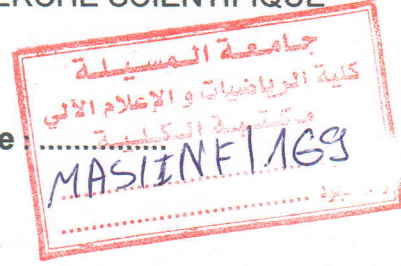 ERCHE SCIENTIFIQUE
جامعة المسيلة
كلية الرياضيات و الإعلام الآلي
مكتبة الكلية
e : ................
MAS/INF/169